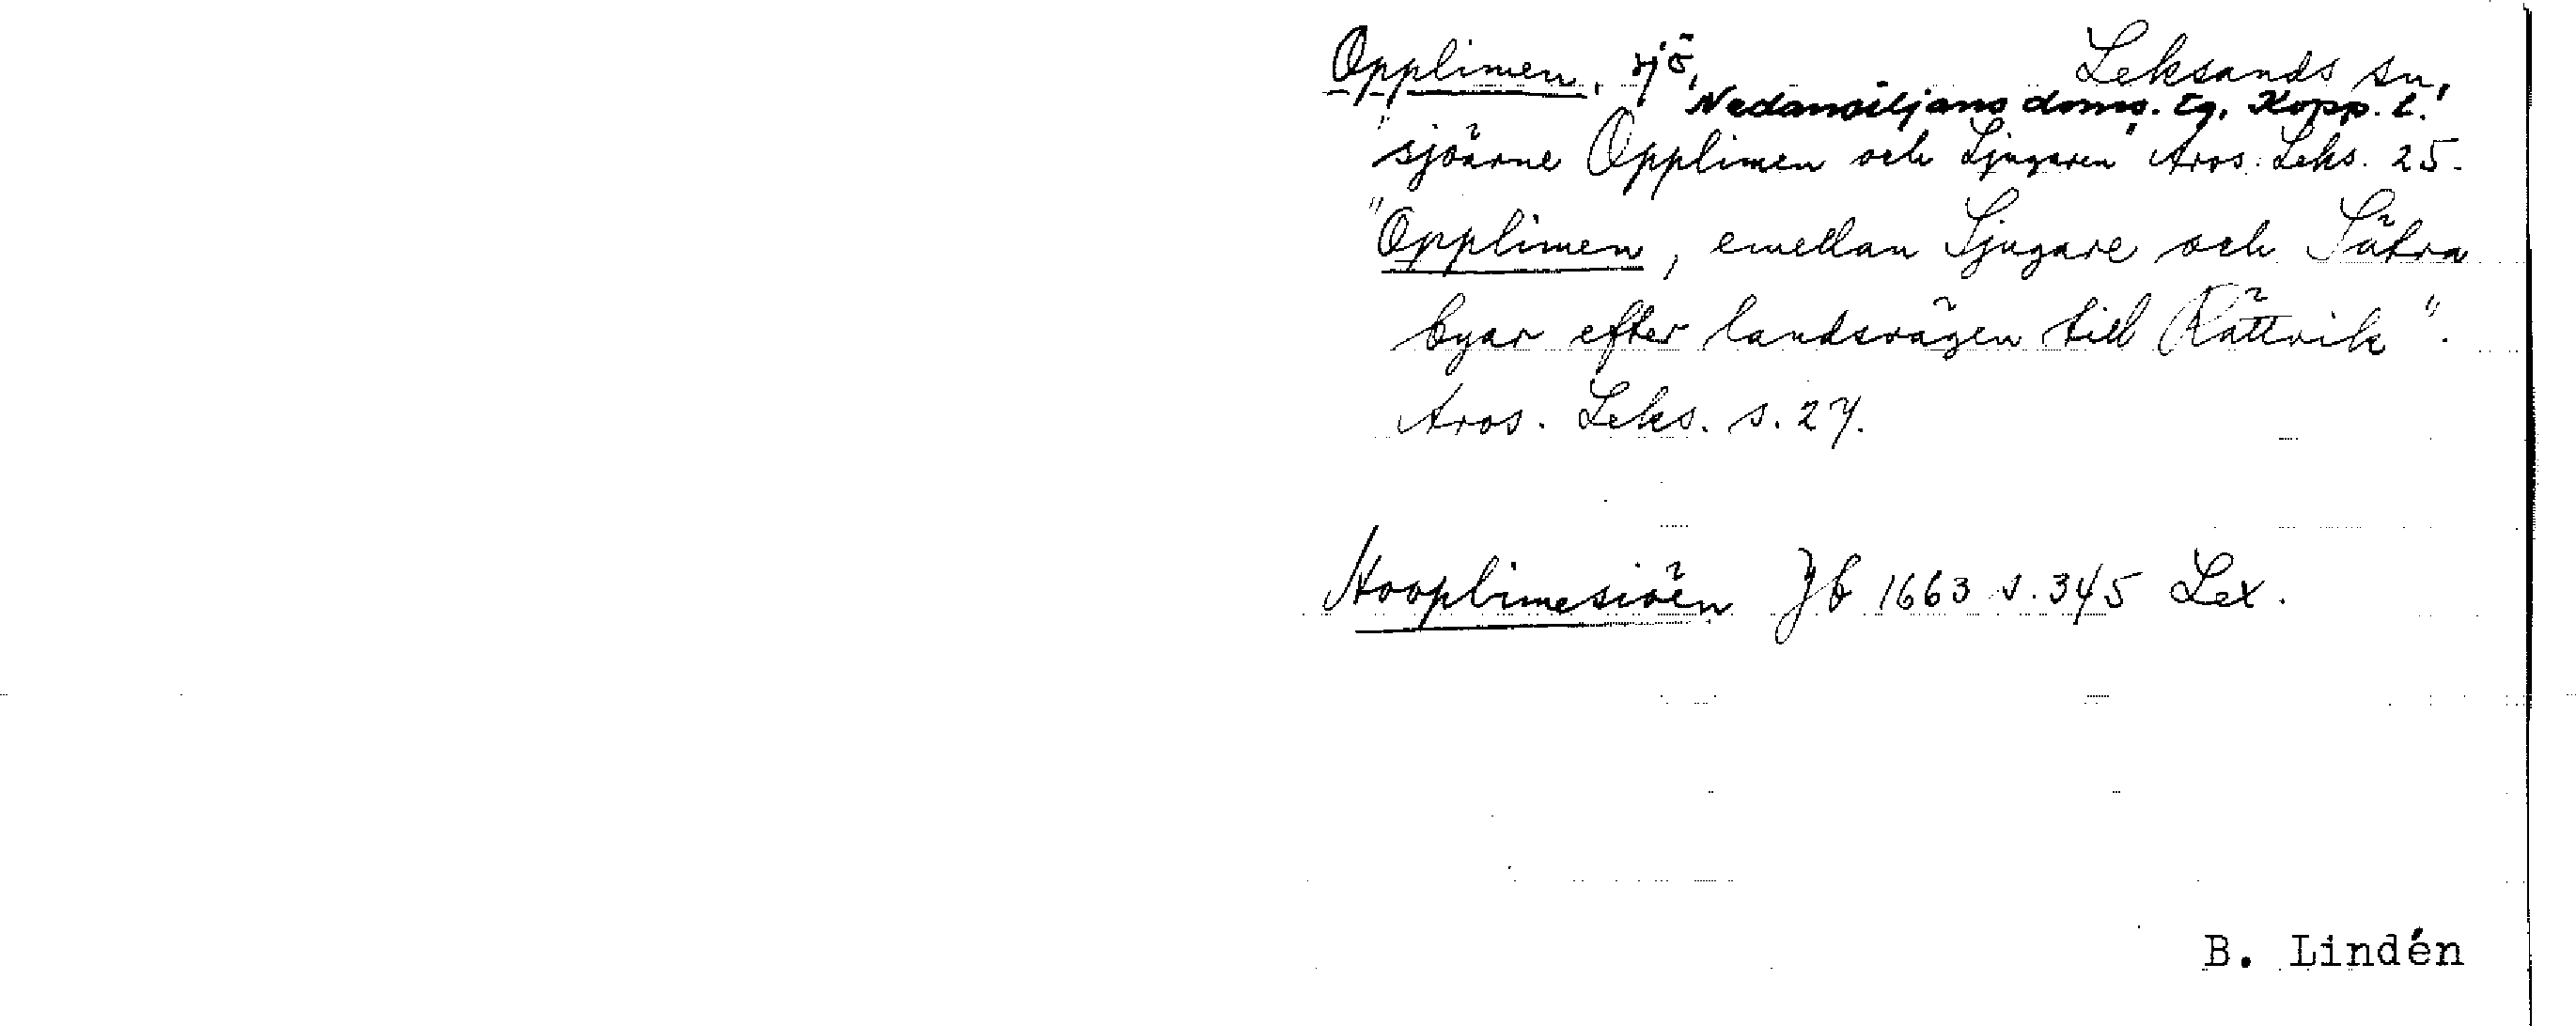 Opplimen, sjö, Leksands sn,
Nedansiljans doms. tg. Kopp. l.
"sjöarne Opplimen och Ljugaren" Aros. Leks. 25.
"Opplimen, emellan Ljugare och Sätra
byar efter landsvägen till Rättvik".
Aros. Leks. s. 27.
Hooplimesiöen Jb 1663 s. 345 Lex.
B. Lindén